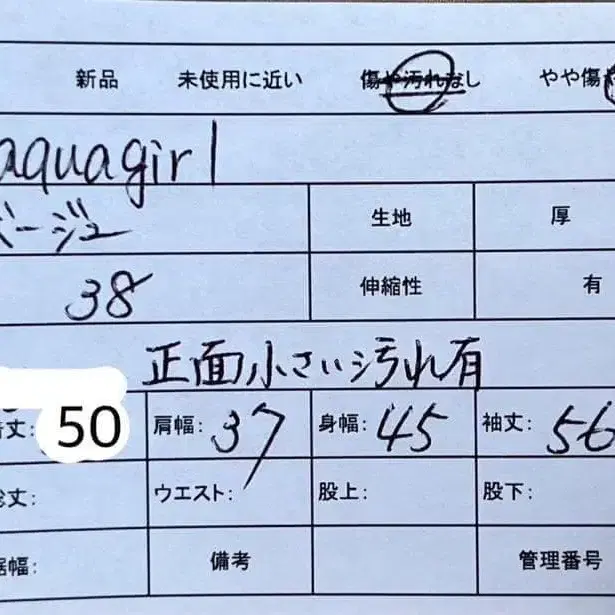 新品 未使用に近い 傷や汚れなし やや傷
aquagirl
ベージュ 生地 厚
38 伸縮性 有
正面小さい汚れ有
着丈: 50 肩幅: 37 身幅: 45 袖丈: 56
総丈: ウエスト: 股上: 股下:
裾幅: 備考 管理番号